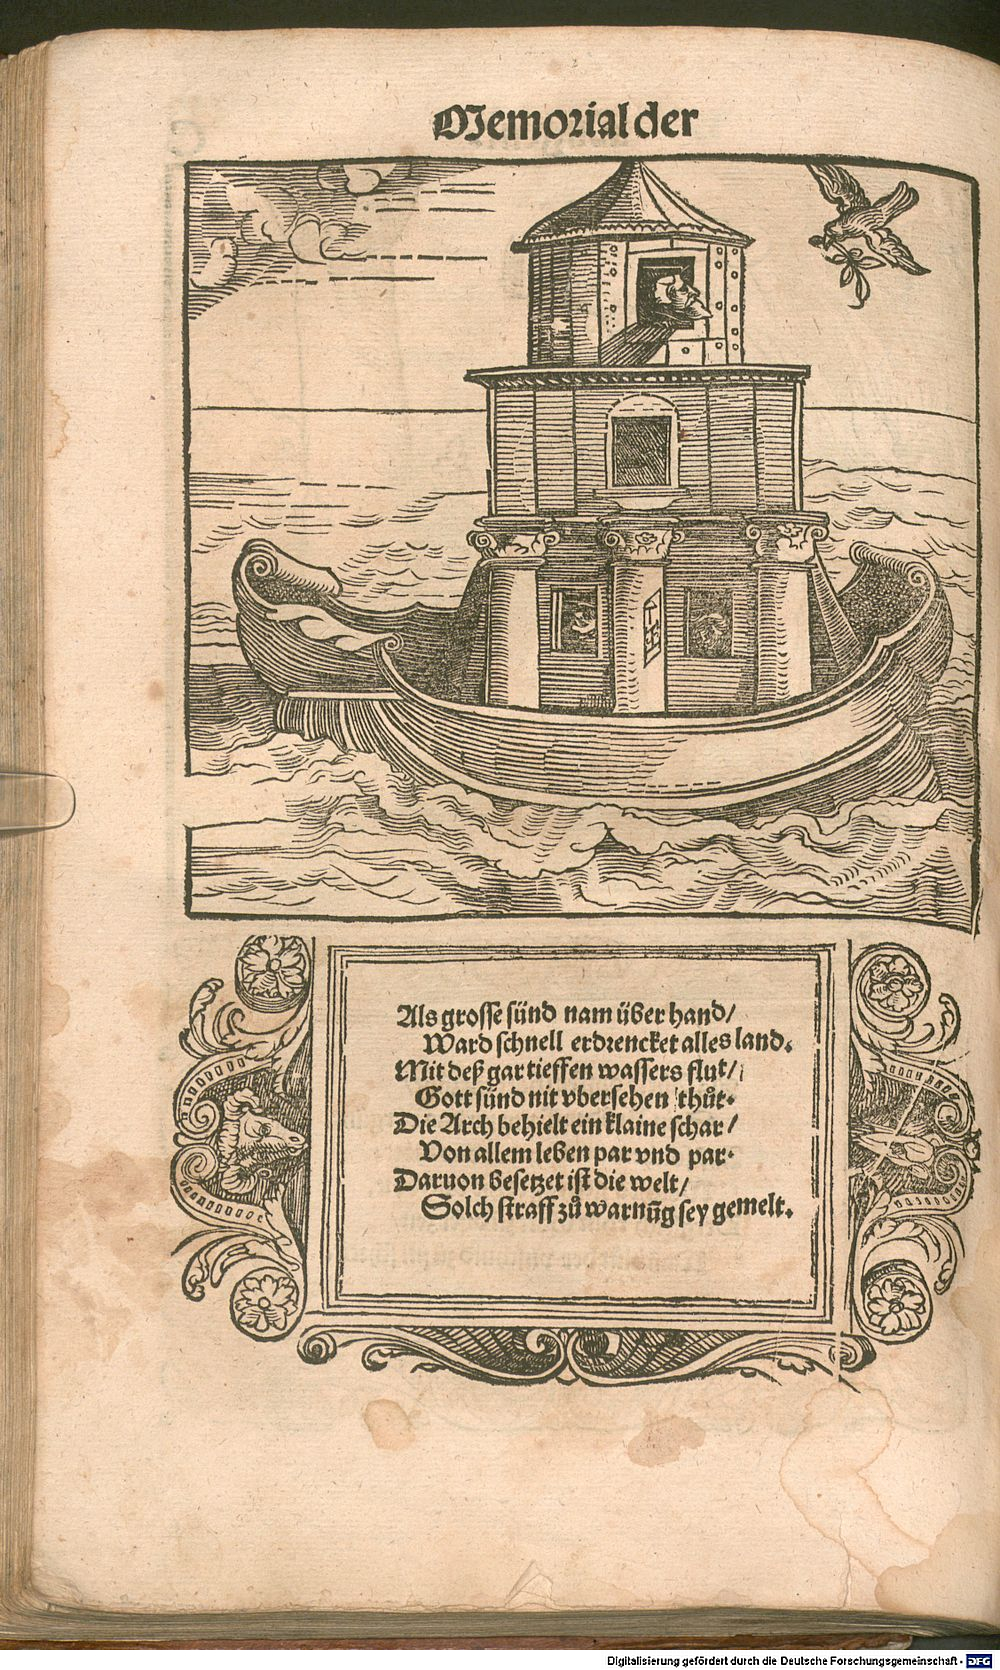 Memorial der
Als grosse sünd nam über hand/
Ward schnell erdrencket alles land.
Mit deß gar tieffen wassers flut/
Gott sünd nit vbersehen thůt.
Die Arch behielt ein klaine schar/
Von allem leben par vnd par.
Daruon besetzet ist die welt/
Solch straff zů warnūg sey gemelt.
Digitalisierung gefördert durch die Deutsche Forschungsgemeinschaft - DFG